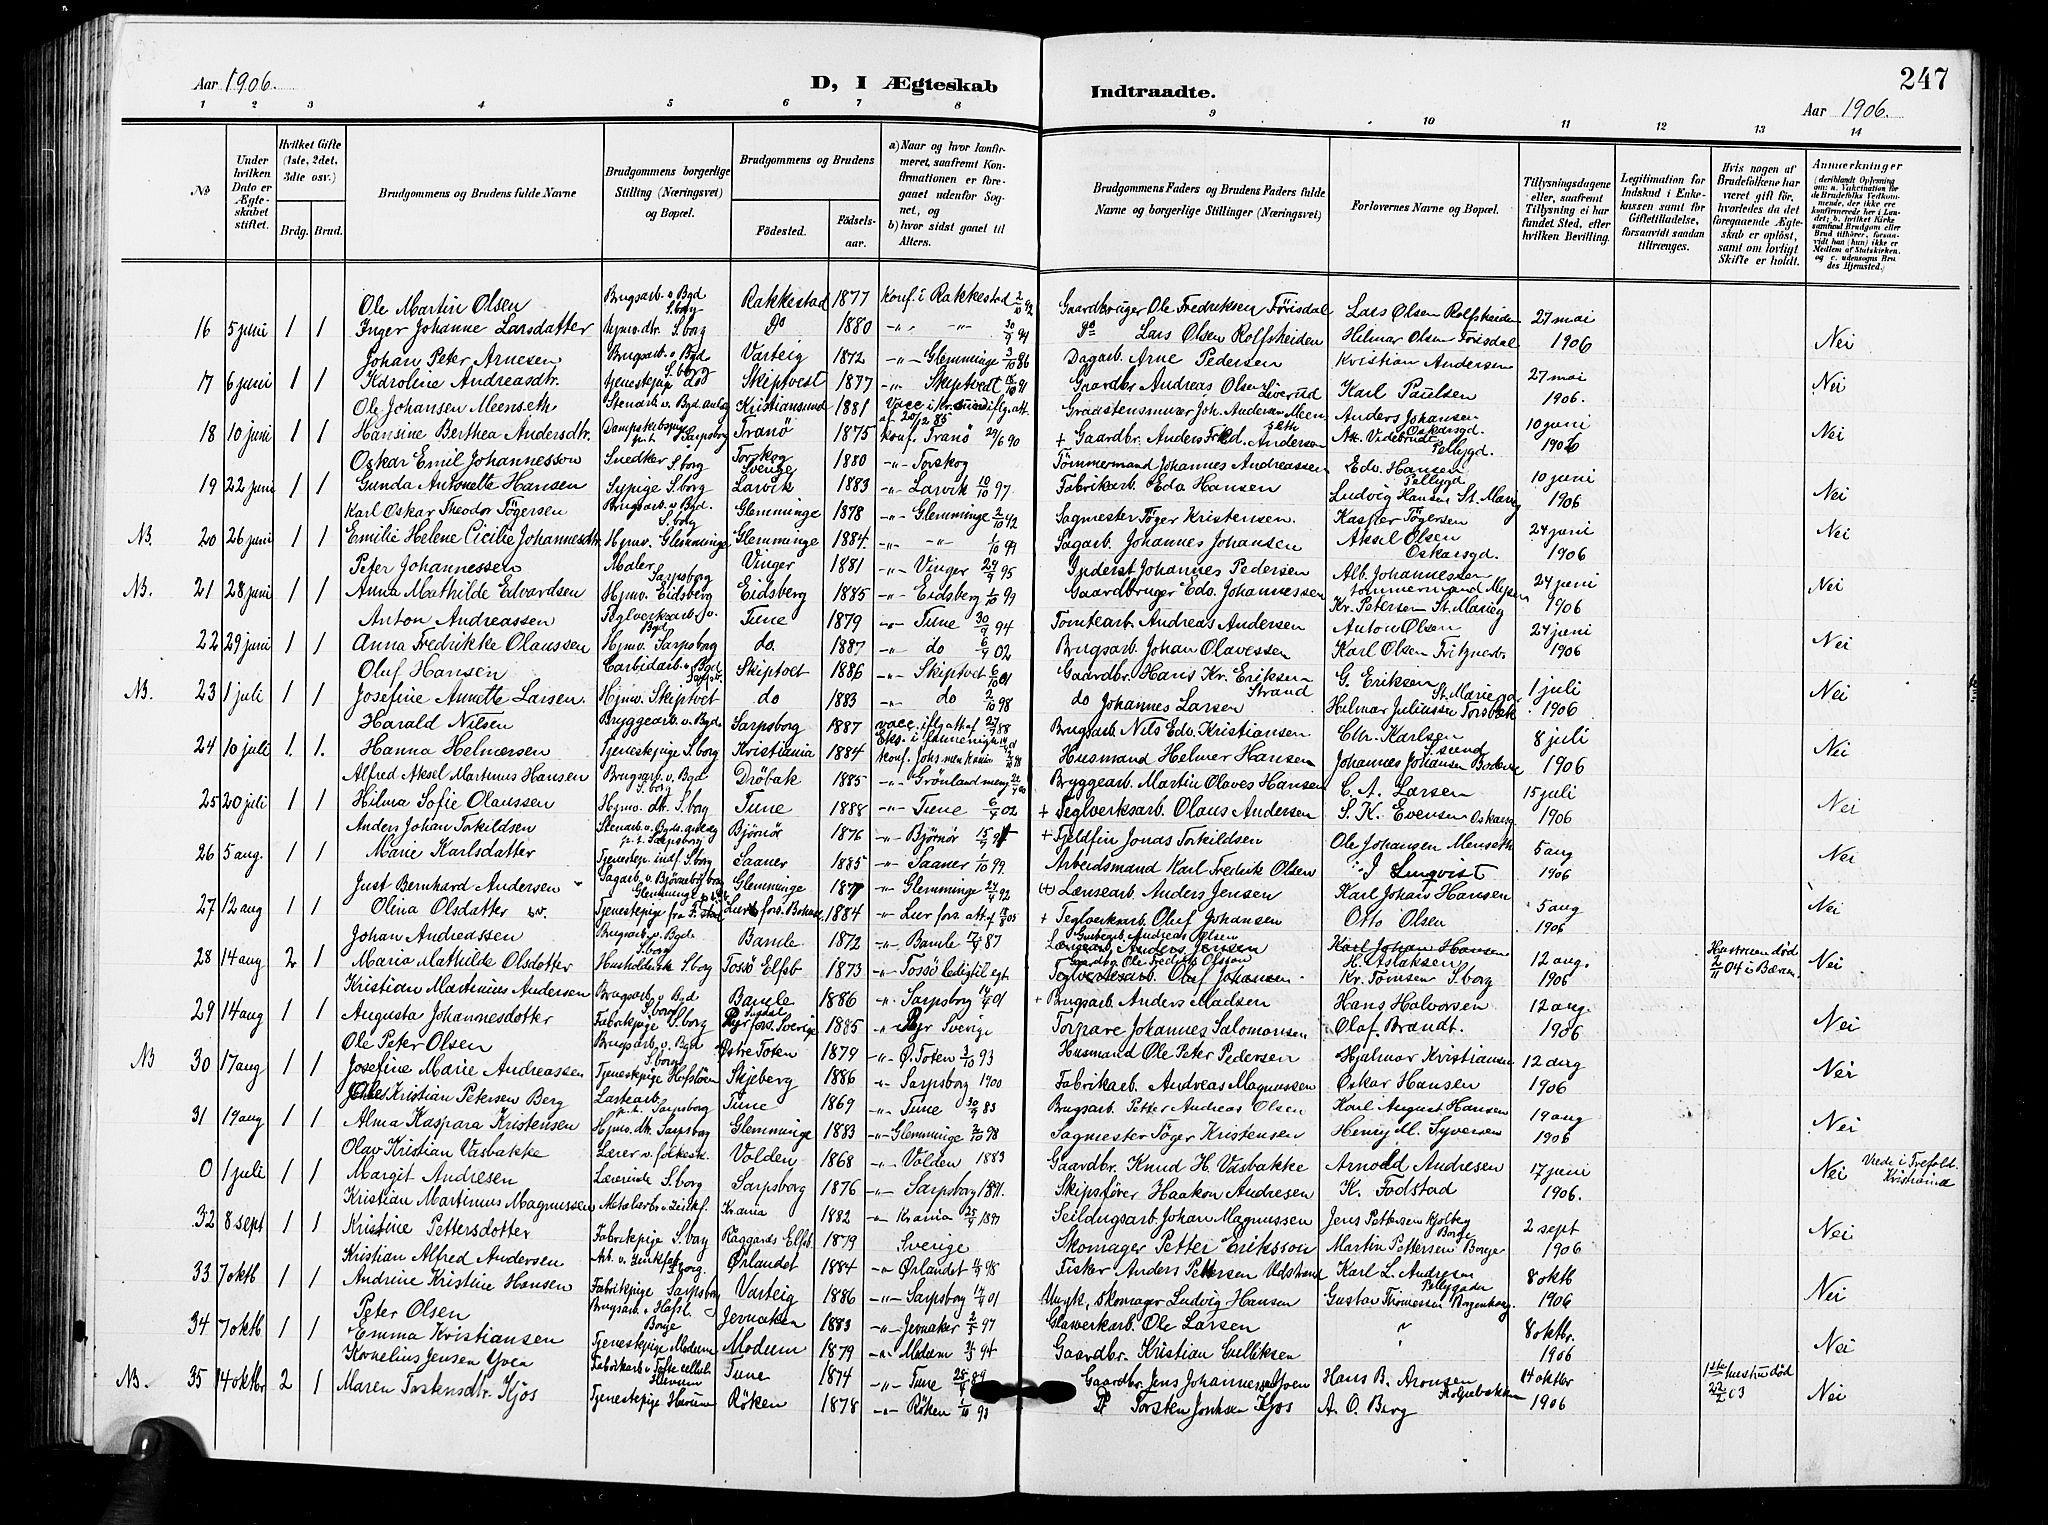 Aar 1906. D, I Ægteskab Indtraadte. 247
Aar 1906.
1 2 3 4 5 6 7 8 9 10 11 12 13 14
No
Under hvilken Dato er Ægteskabet stiftet.
Hvilket Gifte (1ste, 2det, 3die osv.)
Brdg. Brud.
Brudgommens og Brudens fulde Navne
Brudgommens borgerlige Stilling (Næringsvei) og Bopæl.
Brudgommens og Brudens
Fødested. Fødselsaar.
a) Naar og hvor konfirmeret, saafremt Konfirmationen er foregaaet udenfor Sognet, og
b) hvor sidst gaaet til Alters.
Brudgommens Faders og Brudens Faders fulde Navne og borgerlige Stillinger (Næringsvei)
Forlovernes Navne og Bopæl.
Tillysningsdagene eller, saafremt Tillysning ei har fundet Sted, efter hvilken Bevilling.
Legitimation for Indskud i Enkekassen samt for Giftetilladelse, forsaavidt saadan tiltrænges.
Hvis nogen af Brudefolkene har været gift før, hvorledes da det foregaaende Ægteskab er opløst, samt om lovligt Skifte er holdt.
Anmærkninger
Ole Martin Olsen Brugsarb. v. Bgd S.borg Rakkestad 1877 Konf. i Rakkestad 2/10 92 Gaardbruger Ole Fredriksen Förisdal Lars Olsen Rolfsheiden 27 mai
16 5 juni 1 1 Inger Johanne Larsdatter Hjmv. dtr. S.borg Do 1880 -"- -"- 30/9 94 Do Lars Olsen Rolfsheiden Hilmar Olsen Förisdal 1906 Nei
Johan Peter Arnesen Brugsarb. v. Bgd S.borg Varteig 1872 -"- Glemminge 3/10 86 Dagarb. Arne Pedersen Kristian Andersen 27 mai
17 6 juni 1 1 Karoline Andreasdtr. Tjenestepige Skiptvet 1877 -"- Skiptvedt 18/10 91 Gaardbr Andreas Olsen Liverud Karl Paulsen 1906. Nei
Ole Johansen Meenseth Stenarb. v. Bgd. anlæg Kristiansund 1881 Vacc. i Kr.sund iflg. att. af 20/12 85 Graastensmurer Joh. Andersen Meenseth Anders Johansen Oskarsgd. 10 juni
18 10 juni 1 1 Hansine Berthea Andersdtr. p.t. Sarpsborg Tranö 1875 Konf. Tranö 29/6 90 + Gaardbr. Anders Fred. Andersen Pellygd. 1906 Nei
Oskar Emil Johannesson Snedker S.borg Torskog Sverige 1880 -"- Torskog Tömmermand Johannes Andreassen Edv. Hansen Pellygd 10 juni
19 22 juni 1 1 Gunda Antonette Hansen Sypige S.borg Larvik 1883 -"- Larvik 10/10 97 Fabrikarb. Edv Hansen Ludvig Hansen St. Marieg 1906 Nei
Karl Oskar Theodor Tögersen Brugsarb. v. Bgd. S.borg Glemminge 1878 -"- Glemminge 2/10 92 Sagmester Töger Kristensen. Kasper Tögersen 24 juni
NB. 20 26 juni 1 1 Emilie Helene Cicilie Johannesdtr. Hjmv. Glemminge Glemminge 1884 -"- -"- 1/10 99 Sagarb. Johannes Johansen Aksel Olsen Oskarsgd. 1906 Nei
Peter Johannessen Maler Sarpsborg Vinger 1881 -"- Vinger 29/9 95 Inderst Johannes Pedersen Alb. Johannessen 24 juni
NB. 21 28 juni 1 1 Anna Mathilde Edvardsen Hjmv. Eidsberg Eidsberg 1885 -"- Eidsberg 1/10 99 Gaardbruger Edv. Johannessen Kr. Petersen St. Marieg 1906 Nei
Anton Andreassen Teglverksarb. v. Bgd Tune 1879 -"- Tune 30/9 94 Tomtearb. Andreas Andersen Anton Olsen 24 juni
22 29 juni 1 1 Anna Fredrikke Olaussen Hjmv. Sarpsborg do. 1887 -"- do 6/4 02 Brugsarb. Johan Olavessen Karl Olsen Fritznerb. 1906 Nei
Oluf Hansen Carbidarb. v. Bgd Skiptvet 1886 -"- Skiptvet 6/10 01 Gaardbr. Hans Kr. Eriksen Strand G. Eriksen St. Marie gd 1 juli
NB. 23 1 juli 1 1 Josefine Annette Larsen Hjmv. Skiptvet do 1883 -"- do 2/10 98 do Johannes Larsen Helmar Juliussen Torsbæk 1906 Nei
Harald Nilsen Bryggearb. v. Bgd Sarpsborg 1887 vacc. iflg att af 27/9 88 Brugsarb Nils Edv. Kristiansen Chr. Karlsen 8 juli
24 10 juli 1. 1. Hanna Helmersen Tjenestepige S.borg Kristiania 1884 Konf. Johs. men. Krania Husmand Helmer Hansen Johannes Johansen 1906 Nei
Alfred Aksel Martinus Hansen Brugsarb. v. Bgd S.borg Dröbak 1885 -"- Grönland men. Bryggearb. Martin Olaves Hansen C. A. Larsen 15 juli
25 20 juli 1 1 Hilma Sofie Olaussen Hjmv. dtr. S.borg Tune 1888 -"- Tune 6/4 02 + Teglverksarb. Olaus Andersen S. K. Evensen Oskarsg 1906 Nei
Anders Johan Torkildsen Stenarb. v. p.t. Sarpsborg Bjørnør 1876 -"- Bjørnør 15/9 + Fjeldfin Jonas Torkildsen Ole Johansen Menseth 5 aug
26 5 aug. 1 1 Marie Karlsdatter Tjenestep. S.borg Saaner 1885 -"- Saaner 1/10 99. Arbeidsmand Karl Fredrik Olsen J Linqvist 1906 Nei
Just Bernhard Andersen Sagarb. v. Glemminge Glemminge 1877 -"- Glemminge 24/4 92 (+) Lænsearb. Anders Jensen Karl Johan Hansen 5 aug
27 12 aug 1 1 Olina Olsdatter Tjenestepige Lur fors. 1884 -"- Lur fors. att. + Teglverksarb. Oluf Johansen Otto Olsen 1906 Nei
Johan Andreassen Brugsarb. v. Bgd S.borg Bamle 1872 -"- Bamle 17/4 87 Andreas Olsen H. Aslaksen 12 aug. Hustruen död
28 14 aug 2 1 Maria Mathilde Olsdotter Husholderske S.borg Tossö Elfsb 1873 -"- Tossö ledig til egt. Ole Fredrik Olsson Kr. Tomsen S.borg 1906 2/11 04 i Bærum Nei
Kristian Martinius Andersen Brugsarb v Bgd S.borg Bamle 1886 -"- Sarpsborg 14/4 01 + Brugsarb. Anders Madsen Hans Halvorsen 12 aug
29 14 aug 1 1 Augusta Johannesdotter Fabrikpige S.borg Ryr fors. Sverige 1885 -"- Ryr Sverige Torpare Johannes Salomonsen Olaf Brandt. 1906 Nei
Ole Peter Olsen Brugsarb. v. Bgd S.borg Østre Toten 1879 -"- Ø. Toten 3/10 93 Husmand Ole Peter Pedersen Hjalmar Kristiansen 12 aug
NB 30 17 aug 1 1 Josefine Marie Andreassen Tjenestepige Hafslöen Skjeberg 1886 -"- Sarpsborg 1900 Fabrikarb. Andreas Magnussen Oskar Hansen 1906 Nei
Kristian Petersen Berg Lastearb. p.t. Sarpsborg Tune 1869 -"- Tune 30/9 83 Brugsarb. Petter Andreas Olsen Karl August Hansen 19 aug
31 19 aug 1 1 Alma Kaspara Kristensen Hjmv. dtr. Sarpsborg Glemminge 1883 -"- Glemminge 2/10 98 Sagmester Töger Kristensen Henry M. Syversen 1906 Nei
Olav Kristian Vasbakke Lærer v. folkesk. Volden 1868 -"- Volden 1883 Gaardbr. Knud H. Vasbakke Arnold Andresen 17 juni
0 1 juli 1 1 Margit Andresen Lærerinde S.borg Sarpsborg 1876 -"- Sarpsborg 1891. Skipsfører Haakon Andresen K. Fodstad 1906. Nei Viede i Trefold. Kristiania
Kristian Martinius Magnussen Krania 1882 -"- Krania 25/9 1897 Seildugsarb. Johan Magnussen Jens Pettersen Kjölberg Borge 2 sept
32 8 sept 1 1 Kristine Pettersdotter Fabrikpige S.borg Raggärds Elfsb. 1879 Sverige Skomager Petter Eriksson Martin Pettersen Borge 1906 Nei
Kristian Alfred Andersen Arb. v. Zinkfab. S.borg. Ørlandet 1884 -"- Ørlandet 98 Fisker Anders Petersen Udstrand Karl L. Andresen Pellygaden 8 oktb
33 7 oktb 1 1 Andrine Kristine Hansen Fabrikpige Sarpsborg Varteig 1886 -"- Sarpsborg 14/4 01 Skomager Ludvig Hansen Gustav Thomessen Borgenhaug. 1906 Nei
Peter Olsen Brugsarb. v Hafsl. Borge Jevnaker 1883 -"- Jevnaker 2/5 97 Glasverkarb. Ole Larsen " 8 oktbr.
34 7 oktb 1 1 Emma Kristiansen Tjenestepige Modum Modum 1879 -"- Modum 94 Gaardbr. Kristian Gulliksen " 1906 Nei
Kornelius Jensen Yven Fabrikarb v Tofte cellul. Hurum Tune 1874 -"- Tune 25/9 89 Gaardbr. Jens Johannessen Yven Hans B. Aronsen 14 oktbr 1ste hustru död
NB. 35 14 oktbr 2 1 Maren Torstensdtr. Kjos Tjenestepige Hurum Röken 1878 -"- Röken 1/10 93 Torsten Kjos A. O. Berg 1906 22/2 03 Nei